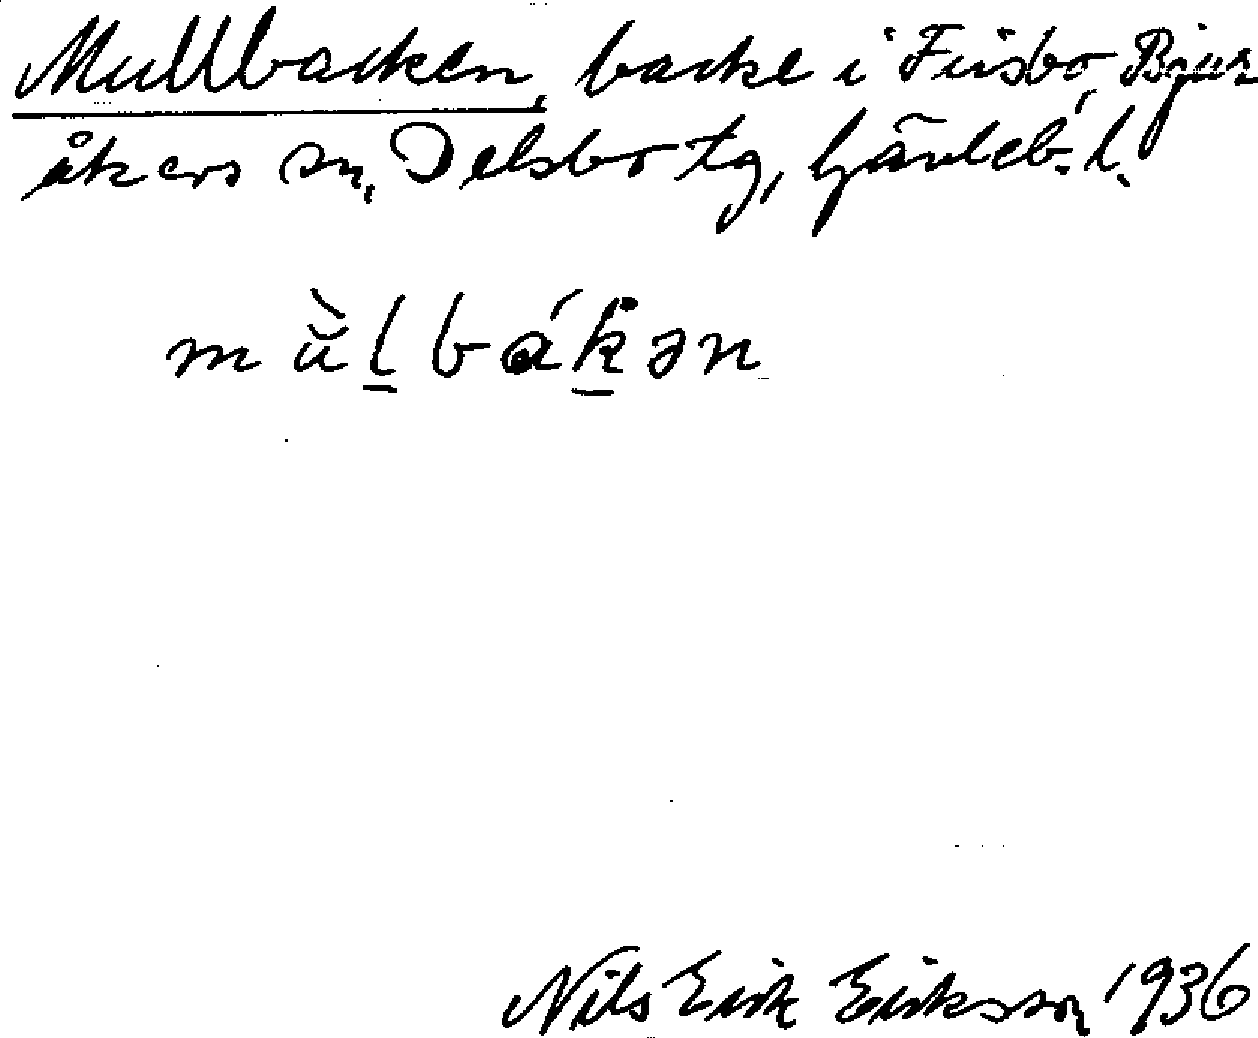 Mullbacken, backe i Furbo, Bjur
åkers sn, Delsbo tg, Gävleb. l.
mùlbákən
Nils Erik Eriksson 1936